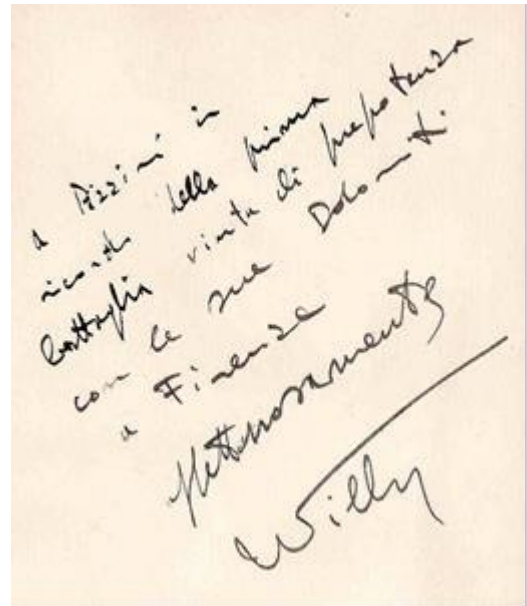 a Pizzini in
ricordo della prima
battaglia vinta di prepotenza
con le sue Dolomiti
a Firenze
affettuosamente
Willy